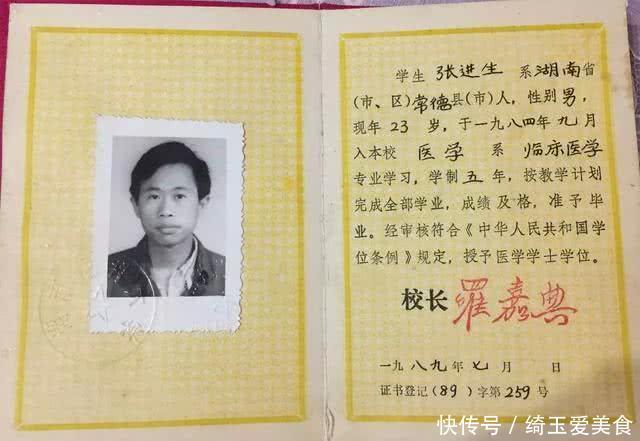 学生 张进生 系湖南省
(市、区)常德县(市)人，性别男，
现年 23 岁，于一九八四年九月
入本校 医学 系 临床医学
专业学习，学制五年，按教学计划
完成全部学业，成绩及格，准予毕
业。经审核符合《中华人民共和国学
位条例》规定，授予医学学士学位。
校长 罗嘉典
一九八九年七月 日
证书登记(89)字第259号
快传号／绮玉爱美食